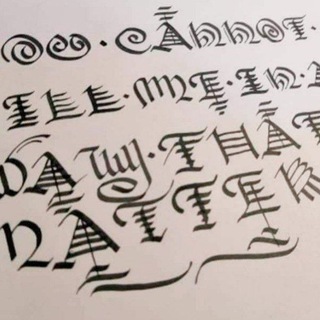 ou · CANNOT ·
ILL · ME · IN ·
WAY · THAT
MATTER